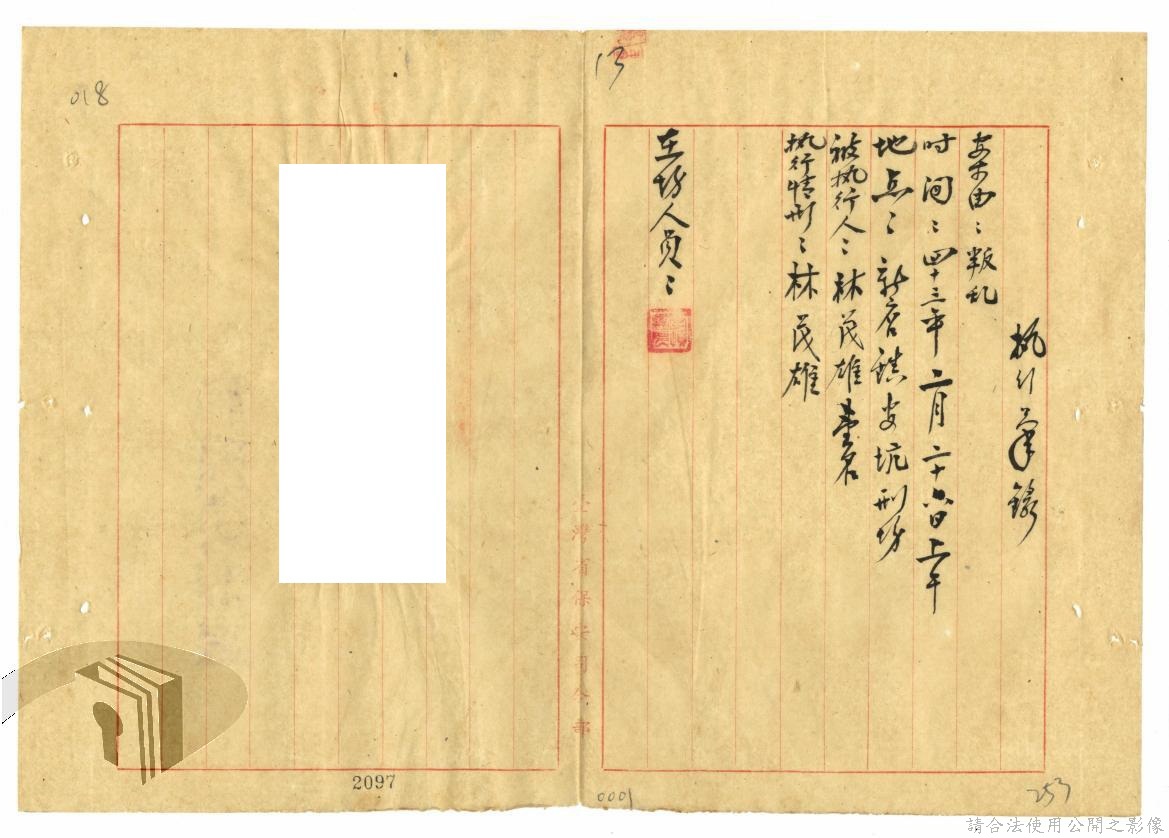 执行筆錄
案由：叛乱
时间：四十三年二月二十六日上午
地点：新店鎮安坑刑場
被执行人：林茂雄壹名
执行情形：林茂雄
在場人員：
臺灣省保安司令部
13
018
2097
0001
253
請合法使用公開之影像